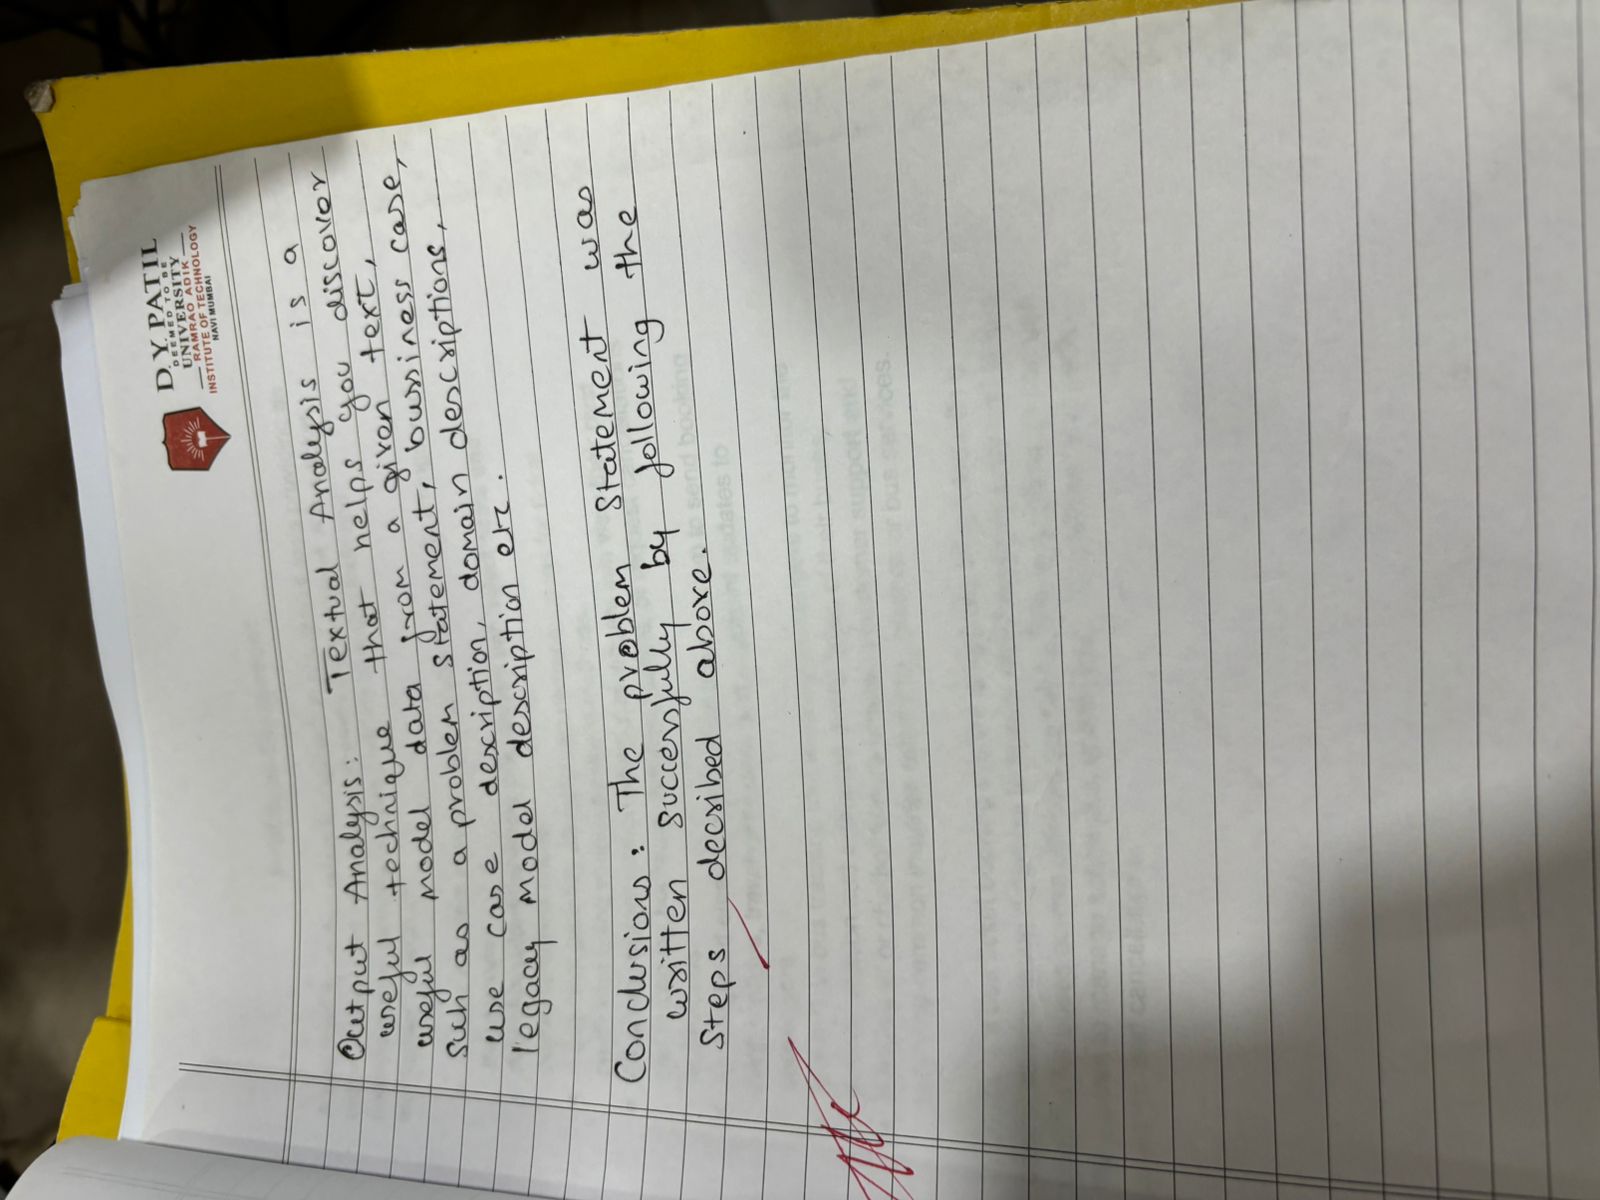 D.Y. PATIL
DEEMED TO BE
UNIVERSITY
RAMRAO ADIK
INSTITUTE OF TECHNOLOGY
NAVI MUMBAI
Output Analysis: Textual Analysis is a
useful technique that helps you discover
useful model data from a given text,
such as a problem statement, bussiness case,
use case description, domain descriptions,
legacy model description etc.
Conclusion: The problem statement was
written successfully by following the
steps decribed above.